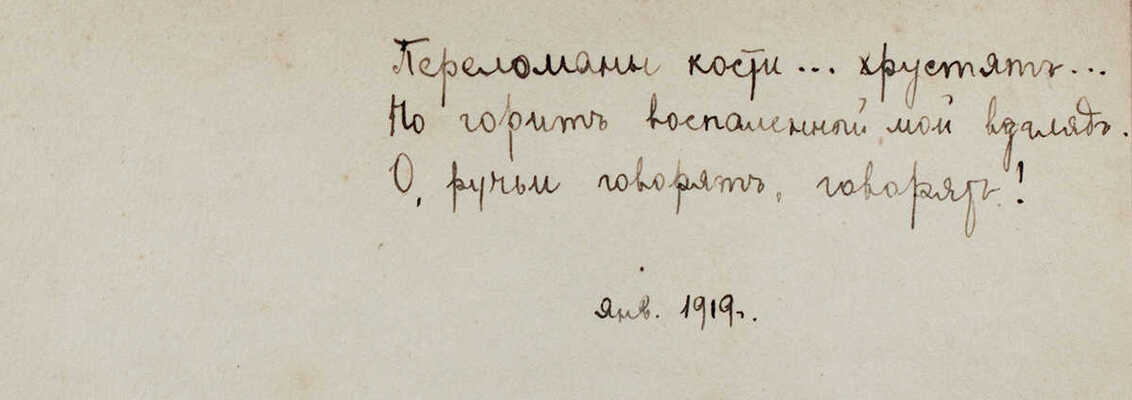 Переломаны кости... хрустятъ...
Но горитъ воспаленный мой взглядъ.
О, ручьи говорятъ, говорятъ!
янв. 1919г.